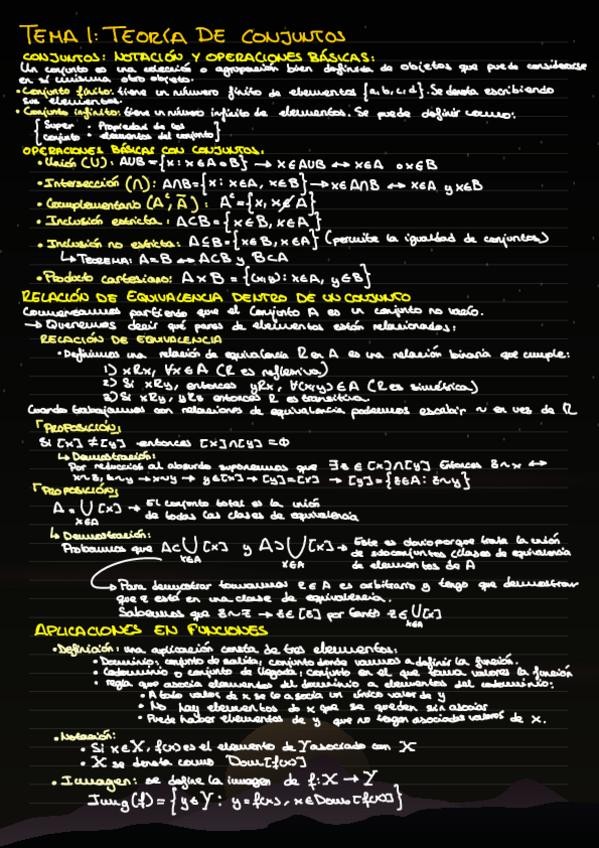 TEMA 1: TEORÍA DE CONJUNTOS
CONJUNTOS: NOTACIÓN Y OPERACIONES BÁSICAS:
Un conjunto es una colección o agrupación bien definida de objetos que puede considerarse
en sí misma otro objeto.
• Conjunto finito: tiene un número finito de elementos {a, b, c, d}. Se denota escribiendo
sus elementos.
• Conjunto infinito: tiene un número infinito de elementos. Se puede definir como:
[Super conjunto : Propiedad de los
elementos del conjunto]
OPERACIONES BÁSICAS CON CONJUNTOS.
• Unión (∪): A∪B = {x : x∈A o B} → x∈A∪B ↔ x∈A o x∈B
• Intersección (∩): A∩B = {x : x∈A, x∈B} → x∈A∩B ↔ x∈A y x∈B
• Complementario (Aᶜ, Ā) : Aᶜ = {x, x∉A}
• Inclusión estricta : A⊂B = {x∈B, x∈A}
• Inclusión no estricta: A⊆B = {x∈B, x∈A} (permite la igualdad de conjuntos)
↳ TEOREMA: A=B ↔ A⊂B y B⊂A
• Producto cartesiano: A×B = {(x,y) : x∈A, y∈B}
RELACIÓN DE EQUIVALENCIA DENTRO DE UN CONJUNTO
Comenzamos partiendo que el conjunto A es un conjunto no vacío.
→ Queremos decir qué pares de elementos están relacionados:
RELACIÓN DE EQUIVALENCIA
• Definimos una relación de equivalencia R en A es una relación binaria que cumple:
1) xRx, ∀x∈A (R es reflexiva)
2) Si xRy, entonces yRx, ∀(x,y)∈A (R es simétrica)
3) Si xRy, yRz entonces R es transitiva.
Cuando trabajamos con relaciones de equivalencia podemos escribir ~ en vez de R
PROPOSICIÓN;
Si [x] ≠ [y] entonces [x]∩[y] = Φ
↳ Demostración:
Por reducción al absurdo suponemos que ∃z∈[x]∩[y] Entonces z~x ↔
x~z, z~y → x~y → y∈[x] → [y]=[x] → [y]={z∈A : z~y}
PROPOSICIÓN;
A = ∪ [x] → El conjunto total es la unión
x∈A de todas las clases de equivalencia
↳ Demostración:
Probamos que A⊂∪[x] y A⊃∪[x] → Este es obvio porque trata la unión
x∈A x∈A de subconjuntos (clases de equivalencia
de elementos de A
↳ Para demostrar tomaremos z∈A es arbitrario y tengo que demostrar
que z está en una clase de equivalencia.
Sabemos que z~z → z∈[z] por tanto z∈∪[x]
x∈A
APLICACIONES EN FUNCIONES
• Definición: una aplicación consta de tres elementos:
• Dominio: conjunto de salida; conjunto donde vamos a definir la función.
• Codominio o conjunto de llegada; conjunto en el que toma valores la función
• regla que asocia elementos del dominio a elementos del codominio:
• A todo valor de x se le asocia un único valor de y
• No hay elementos de x que se queden sin asociar
• Puede haber elementos de y que no tengan asociados valores de x.
• Notación:
• Si x∈X, f(x) es el elemento de Y asociado con X
• X se denota como Dom[f(x)]
• Imagen: se define la imagen de f: X → Y
Img(f) = {y∈Y : y=f(x), x∈Dom[f(x)]}